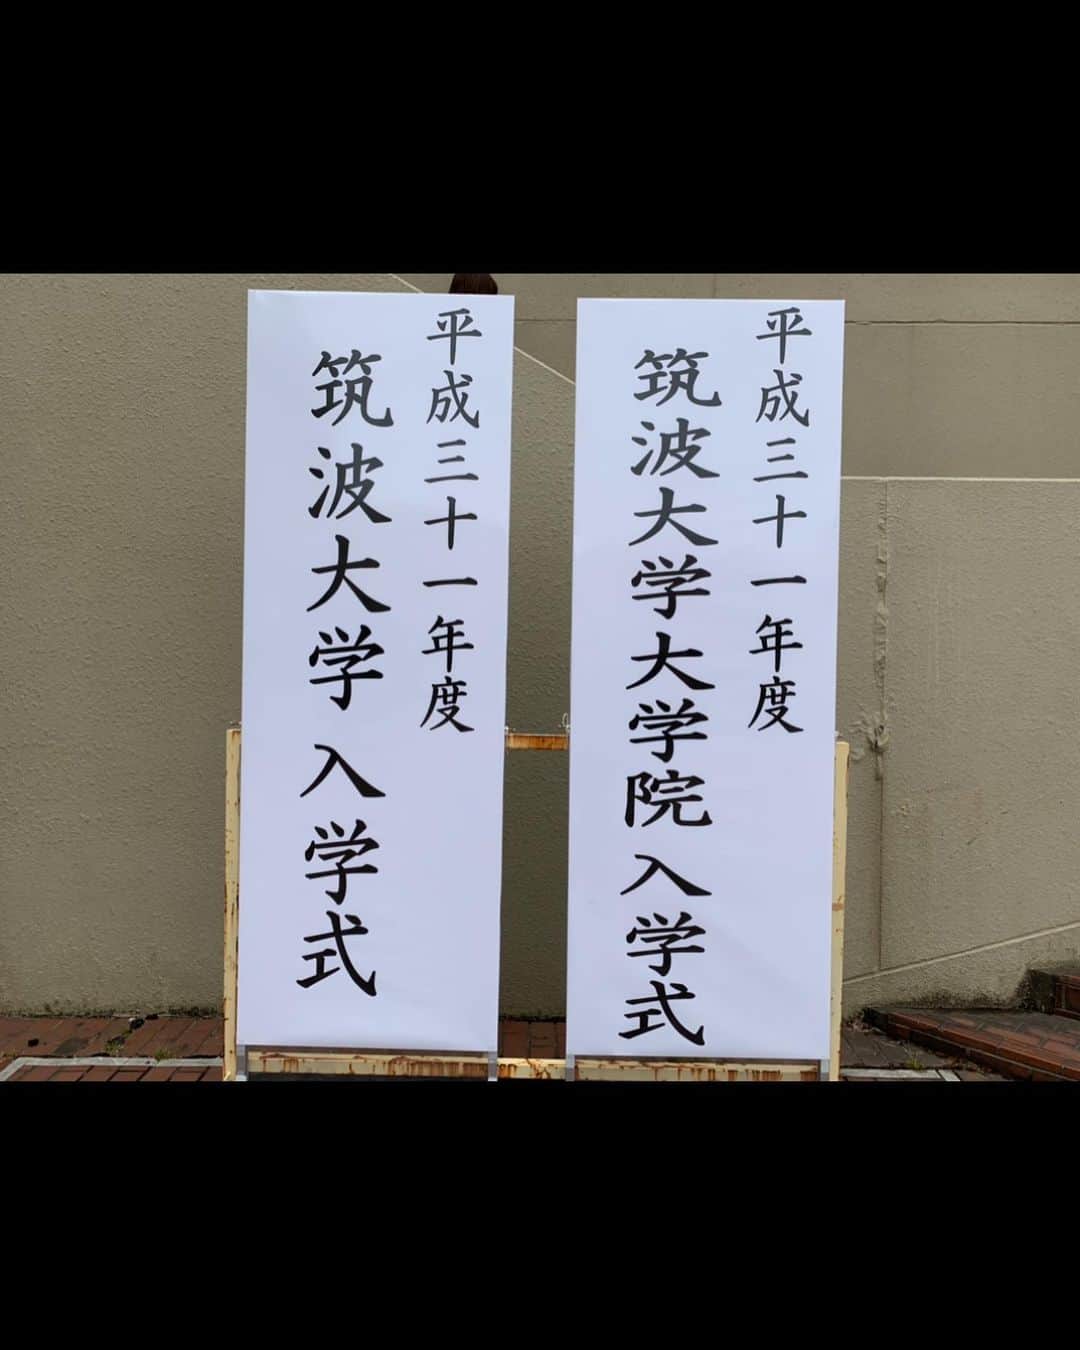 平成三十一年度
筑波大学大学院 入学式
平成三十一年度
筑波大学 入学式